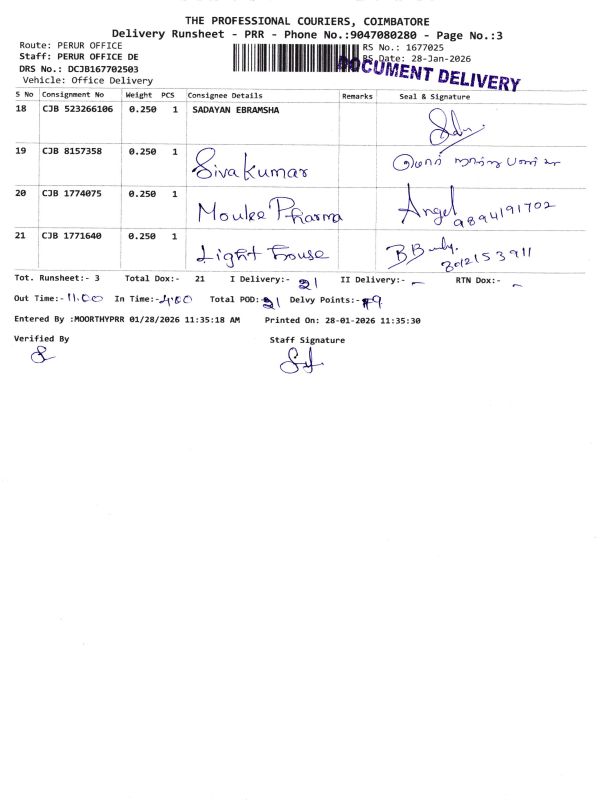 THE PROFESSIONAL COURIERS, COIMBATORE
Delivery Runsheet - PRR - Phone No.:9047080280 - Page No.:3
Route: PERUR OFFICE
RS No.: 1677025
Staff: PERUR OFFICE DE
RS Date: 28-Jan-2026
DOCUMENT DELIVERY
DRS No.: DCJB167702503
Vehicle: Office Delivery
S No Consignment No Weight PCS Consignee Details Remarks Seal & Signature
18 CJB 523266106 0.250 1 SADAYAN EBRAMSHA
19 CJB 8157358 0.250 1 Sivakumar
20 CJB 1774075 0.250 1 Moulee Pharma Angel 9894191702
21 CJB 1771640 0.250 1 Light house
Tot. Runsheet:- 3 Total Dox:- 21 I Delivery:- 21 II Delivery:- - RTN Dox:- -
Out Time:- 11.00 In Time:- 4.00 Total POD:- 21 Delvy Points:- 9
Entered By :MOORTHYPRR 01/28/2026 11:35:18 AM Printed On: 28-01-2026 11:35:30
Verified By Staff Signature